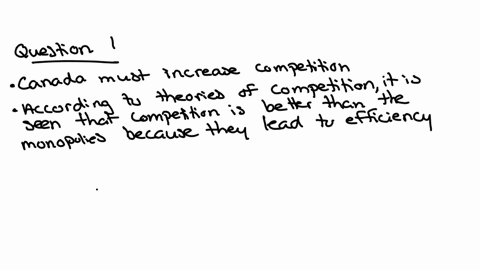 Question 1
• Canada must increase competition
• According to theories of competition, it is
seen that competition is better than the
monopolies because they lead to efficiency